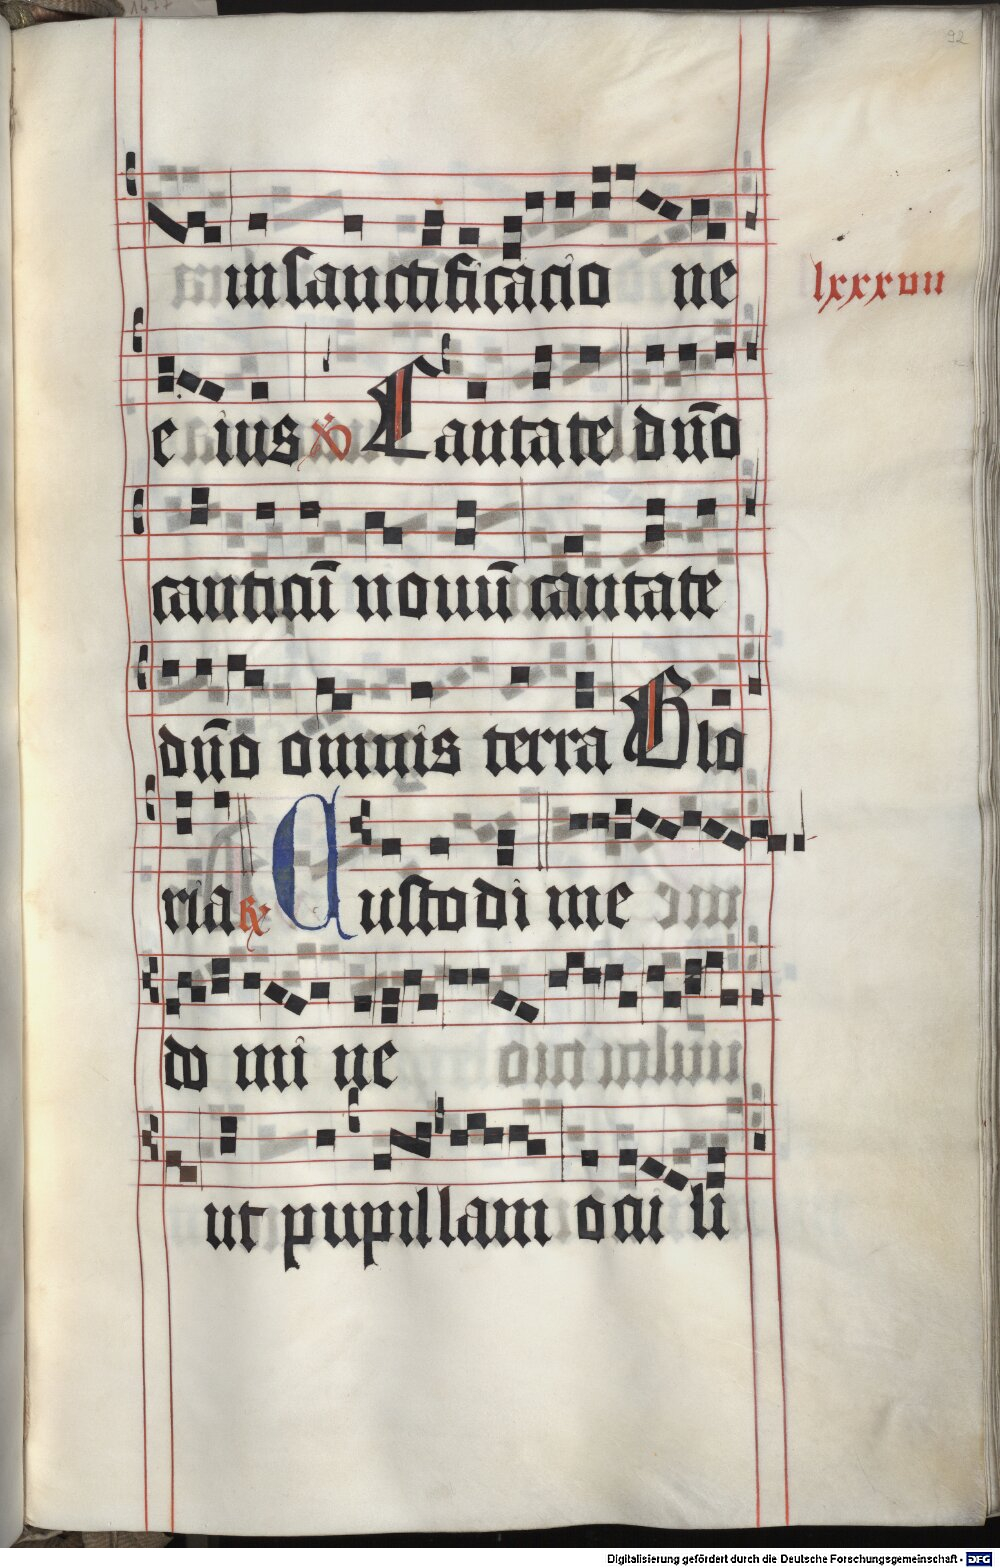 1477
92
in sanctificacio ne
lxxxvii
e ius ℣ Cantate dn̄o
canticū nouū cantate
dn̄o omnis terra Glo
ria ℟ Custodi me
do mi ne
ut pupillam oculi
Digitalisierung gefördert durch die Deutsche Forschungsgemeinschaft - DFG